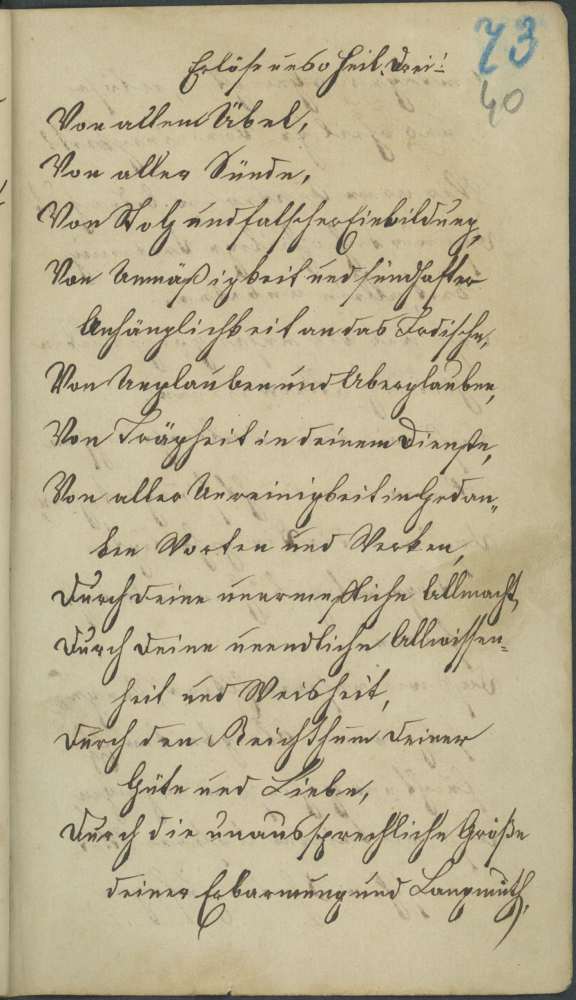 73
40
Erlöse uns o Heil. Drei!
Von allem Übel,
Von aller Sünde,
Von Stolz und falscher Einbildung,
Von Unmäßigkeit und sündhafter
Anhänglichkeit an das Irdische,
Von Unglauben und Aberglauben,
Von Trägheit in deinem Dienste,
Von aller Unreinigkeit in Gedan„
ken Worten und Werken,
Durch deine unermeßliche Allmacht,
Durch deine unendliche Allwissen=
heit und Weisheit,
Durch den Reichthum deiner
Güte und Liebe,
Durch die unaussprechliche Größe
deiner Erbarmung und Langmuth,